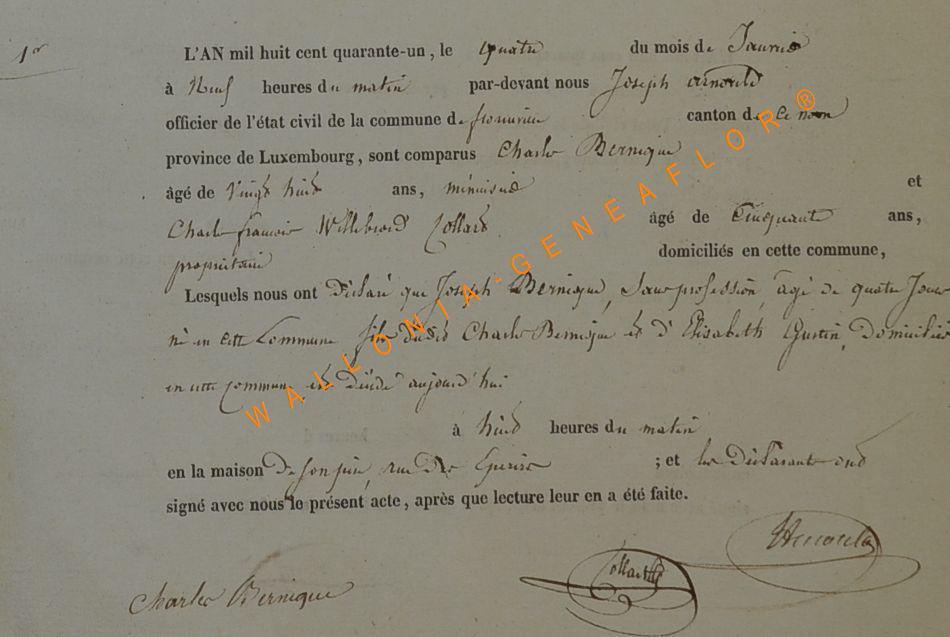 1er
L'AN mil huit cent quarante-un, le quatre du mois de Janvier
à Neuf heures du matin par-devant nous Joseph Arnould
officier de l'état civil de la commune de canton de ce nom
province de Luxembourg, sont comparus Charles Bernique
âgé de vingt huit ans, menuisier et
Charles françois Willibrord Collard âgé de Cinquante ans,
propriétaire domiciliés en cette commune,
Lesquels nous ont Déclaré que Joseph Bernique, Sans profession, âgé de quatre Jours
né en cette Commune fils dudit Charles Bernique et d'Elisabeth Gustin, Domiciliés
en cette Commune est décédé aujourd'hui
à huit heures du matin
en la maison De son père, rue des ; et les déclarants ont
signé avec nous le présent acte, après que lecture leur en a été faite.
HArnould
Collard
Charles Bernique
WALLONIA-GENEAFLOR®